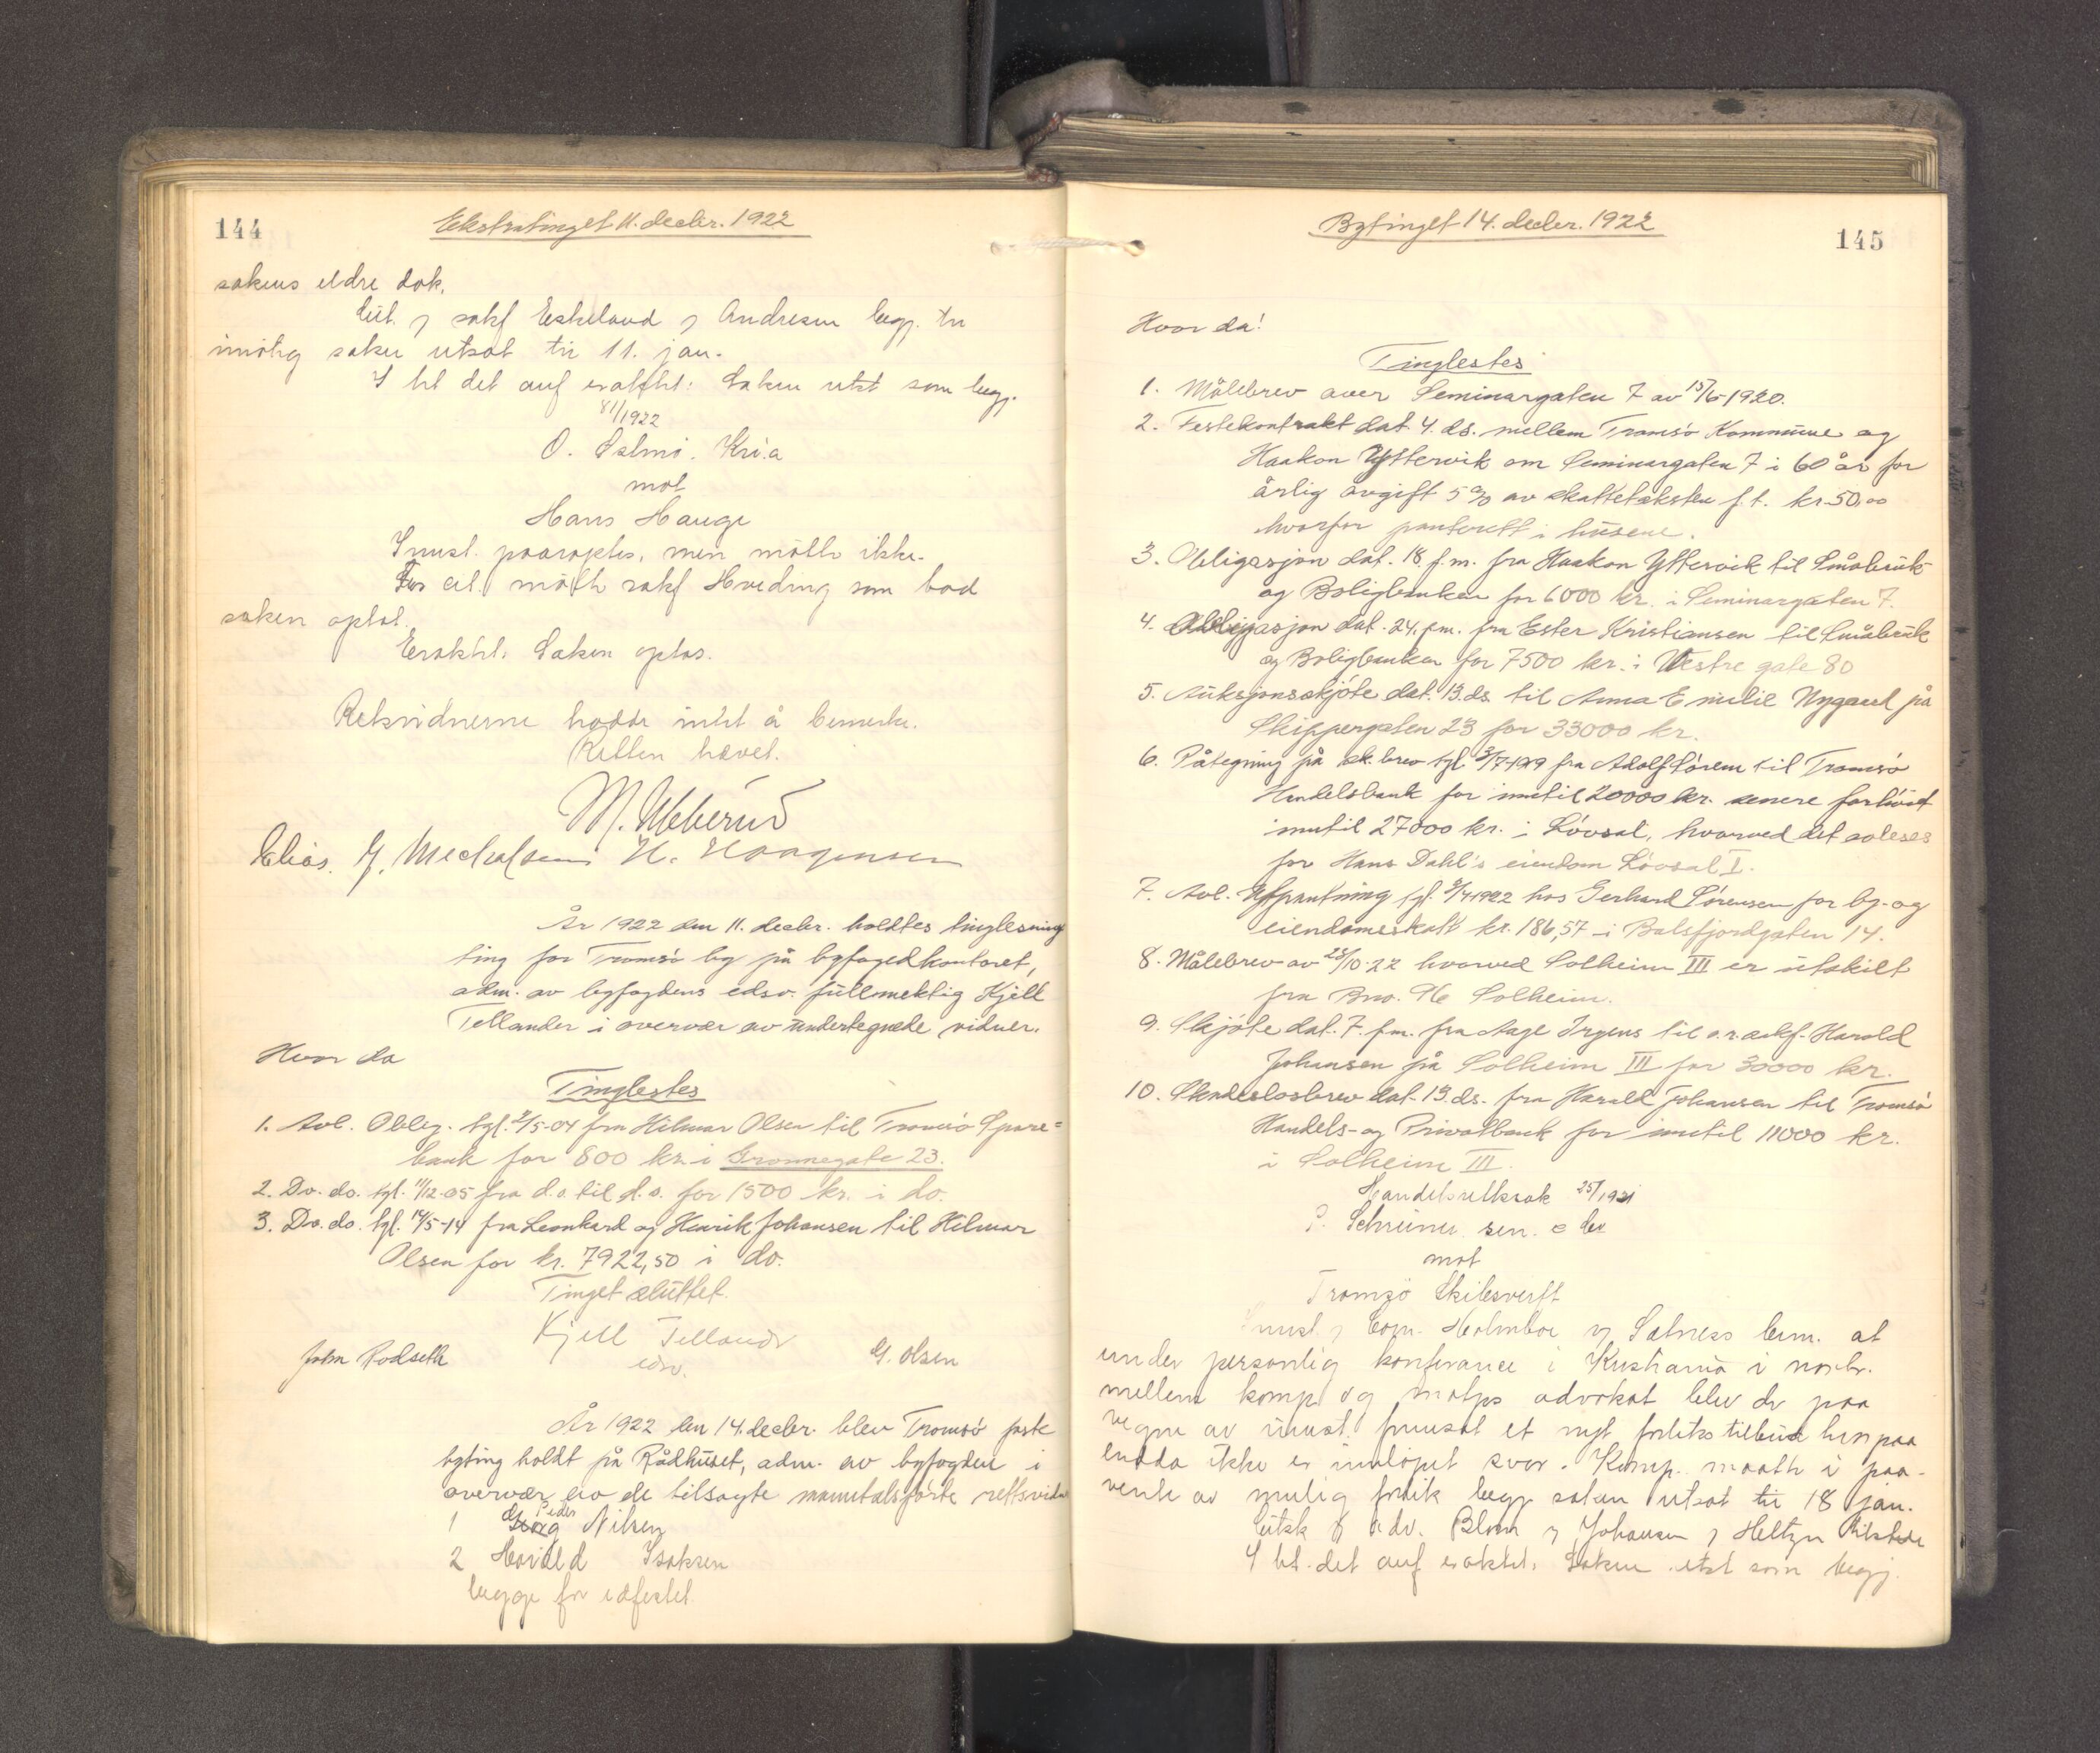 144
Ekstratinget 11. decbr. 1922
sakens eldre dok.
Cit. v sakf Eskeland v Andresen begj. til
imötg saken utsat til 11. jan.
I hl det auf eraktet: Saken utst som begj.
81/1922
O. Salmi. Kri.a
mot
Hans Hauge
Innst. paaroptes, men mötte ikke.
For cit. mötte sakf Hveding som bad
saken optat.
Eraktet: Saken optas.
Retsvidnerne hadde intet å bemerke.
Retten hævet.
Elias. J. Mechalsen H. Haagensen
År 1922 den 11. decbr. holdtes tinglesning
ting for Tromsö by på byfogedkontoret,
adm. av byfogdens edsv. fullmektig Kjell
Tellander i overvær av undertegnede vidner.
Hvor da
Tinglestes
1. Avl. Oblig. tgl. 2/5-04 fra Hilmar Olsen til Tromsö Spare=
bank for 800 kr. i Grönnegate 23.
2. Do. do. tgl. 11/12-05 fra d.o. til d.o. for 1500 kr. i do.
3. Do. do. tgl. 14/5-14 fra Leonhard og Henrik Johansen til Hilmar
Olsen for kr. 7922,50 i do.
Tinget sluttet.
Kjell Tellander
edsv.
John Rodseth
G. Olsen
År 1922 den 14. decbr. blev Tromsö faste
byting holdt på Rådhuset, adm. av byfogden i
overvær av de tilsagte mantalsförte rettsvidner
1 Peder Nilsen
2 Harald Isaksen
begge för edfestet.
Bytinget 14. decbr. 1922
145
Hvor da!
Tinglestes
1. Målebrev over Seminargaten 7 av 15/6-1920.
2. Festekontrakt dat. 4. ds. mellem Tromsö Kommune og
Haakon Yttervik om Seminargaten 7 i 60 år for
årlig avgift 5 % av skattetaksten f.t. kr. 50,00
hvorfor panterett i husene.
3. Obligasjon dat. 18. f.m. fra Haakon Yttervik til Småbruk
og Boligbanken for 6000 kr. i Seminargaten 7.
4. Obligasjon dat. 24. f.m. fra Ester Kristiansen til Småbruk
og Boligbanken for 7500 kr. i Vestre gate 80
5. Auksjonsskjöte dat. 13. ds. til Anna Emilie Nygaard på
Skippergaten 23 for 33000 kr.
6. Påtegning på sk. brev tgl. 3/7-1919 fra Adolf Sörem til Tromsö
Handelsbank for inntil 20000 kr. senere forhöiet
inntil 27000 kr. i Lövsal, hvorved det avleses
for Hans Dahl's eiendom Lövsal I.
7. Avl. Utpantning tgl. 6/4 1922 hos Gerhard Sörensen for by- og
eiendomsskatt kr. 186,57 i Balsfjordgaten 14.
8. Målebrev av 28/10-22 hvorved Solheim III er utskilt
fra Bno. 96 Solheim.
9. Skjöte dat. 7. f.m. fra Aage Irgens til o.r.sakf. Harald
Johansen på Solheim III for 30000 kr.
10. Skadeslosbrev dat. 13. ds. fra Harald Johansen til Tromsö
Handels- og Privatbank for inntil 11000 kr.
i Solheim III.
Handelsrettssak 25/1921
P. Schreiner sen. & Co
mot
Tromsö Skibsverft
Innst. v Corn. Holmboe v Salness bem. at
under personlig konferanse i Kristiania i novbr.
mellem komp. og motps advokat blev der paa
vegne av innst. fremsat et nyt forlikstilbud hvorpaa
endda ikke er indlöpet svar. Komp. maatte i paa-
vente av mulig forlik begj saken utsat til 18 jan.
Citsk v adv. Blom v Johansen v Heltzen tilstede
I hl. det auf eraktet: Saken utst som begj.